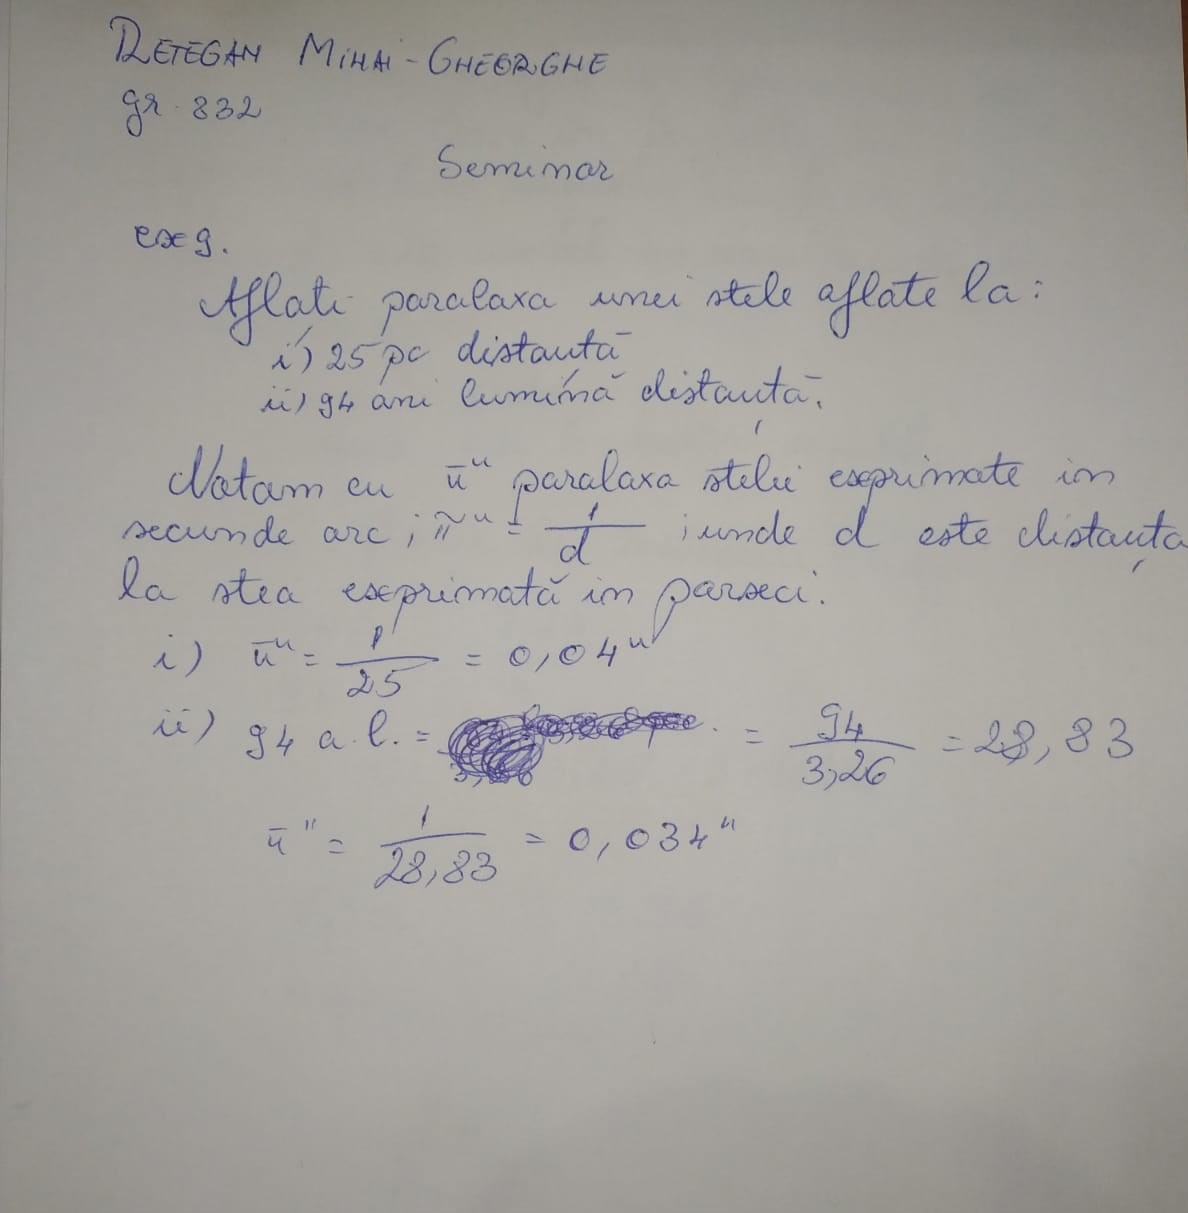 RETEGAN MIHAI-GHEORGHE
gr. 832
Seminar
ex 9.
Aflați paralaxa unei stele aflate la:
i) 25 pc distanță
ii) 94 ani lumină distanță.
Notam cu π" paralaxa stelei exprimate in
secunde arc; π" = 1/d ; unde d este distanța
la stea exprimată in parseci.
i) π" = 1/25 = 0,04"
ii) 94 a.l. = = 94/3,26 = 28,83
π" = 1/28,83 = 0,034"